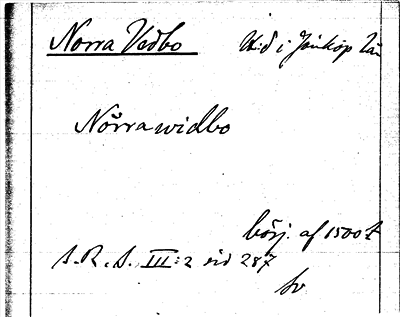 Norra Vedbo hd i Jönköp län
Norrawidbo
börj. af 1500 t
S.R.S. III:2 sid 287